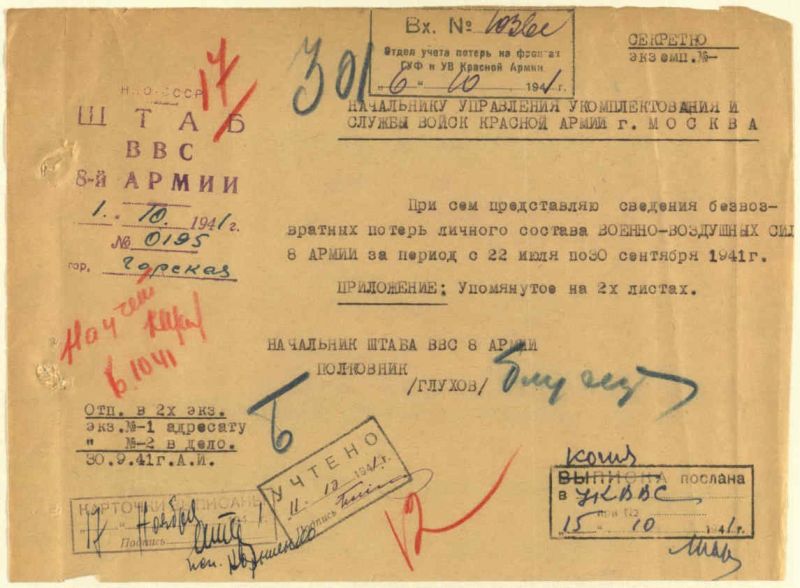 Вх. №
Отдел учета потерь на фронтах
ГУФ и УВ Красной Армии
"6" 10 1941 г.
СЕКРЕТНО
экземп.№-
17
301
Н.К.О.-СССР
ШТАБ
ВВС
8-й АРМИИ
1. " 10. 1941 г.
№ 0195
гор. Горская
НАЧАЛЬНИКУ УПРАВЛЕНИЯ УКОМПЛЕКТОВАНИЯ И
СЛУЖБЫ ВОЙСК КРАСНОЙ АРМИИ г. МОСКВА
При сем представляю сведения безвоз-
вратных потерь личного состава ВОЕННО-ВОЗДУШНЫХ СИЛ
8 АРМИИ за период с 22 июля по30 сентября 1941 г.
ПРИЛОЖЕНИЕ: Упомянутое на 2х листах.
НАЧАЛЬНИК ШТАБА ВВС 8 АРМИИ
ПОЛКОВНИК
/ГЛУХОВ/
6.10.41
Отп. в 2х экз.
экз.№-1 адресату
" №-2 в дело.
30.9.41г.А.И.
УЧТЕНО
11. 10 1941 г.
Подпись
КАРТОЧКИ ВЫПИСАНЫ
17 Ноября
Подпись
12
Копия
ВЫПИСКА послана
в УКВВС
при №
"15" 10 1941 г.